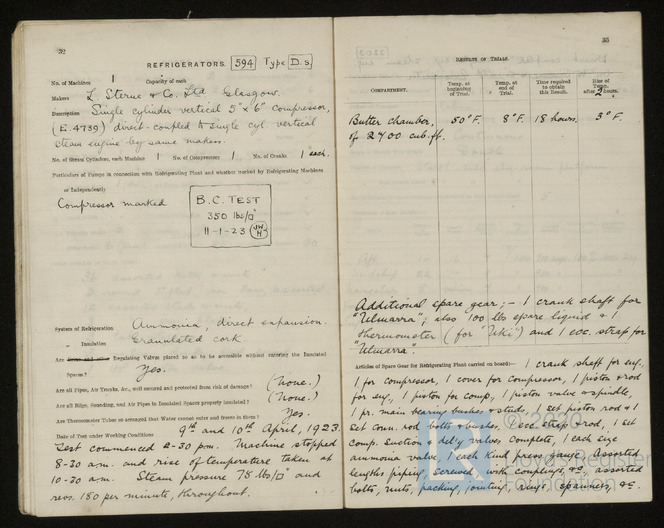 32
REFRIGERATORS. 594 Type D.S
No. of Machines 1 Capacity of each
Makers L. Sterne & Co. Ltd Glasgow.
Description Single cylinder vertical 5" x 6" compressor,
(E.4739) direct-coupled to single cyl. vertical
steam engine by same makers.
No. of Steam Cylinders, each Machine 1 No. of Compressors 1 No. of Cranks 1 each.
Particulars of Pumps in connection with Refrigerating Plant and whether worked by Refrigerating Machines
or Independently
Compressor marked
B.C. TEST
350 lbs/□"
11-1-23 JW H
System of Refrigeration Ammonia, direct expansion.
" Insulation Granulated cork
Are Regulating Valves placed so as to be accessible without entering the Insulated
Spaces? Yes.
Are all Pipes, Air Trunks, &c., well secured and protected from risk of damage? (None.)
Are all Bilge, Sounding, and Air Pipes in Insulated Spaces properly insulated? (None.)
Are Thermometer Tubes so arranged that Water cannot enter and freeze in them? Yes.
Date of Test under Working Conditions 9th and 10th April, 1923.
Test commenced 2-30 p.m. Machine stopped
8-30 a.m. and rise of temperature taken at
10-30 a.m. Steam pressure 78 lbs/□" and
revs. 180 per minute, throughout.
33
RESULTS OF TRIALS.
COMPARTMENT. Temp. at beginning of Trial. Temp. at end of Trial. Time required to obtain this Result. Rise of Temp. after 2 hours.
Butter chamber, 50°F. 8°F. 18 hours. 3°F.
of 2700 cub. ft.
Additional spare gear;- 1 crank shaft for
"Ulmarra"; also 100 lbs spare liquid & 1
thermometer (for "Uki") and 1 ecc. strap for
"Ulmarra".
Articles of Spare Gear for Refrigerating Plant carried on board:— 1 crank shaft for eng.,
1 for compressor, 1 cover for compressor, 1 piston & rod
for eng., 1 piston for comp., 1 piston valve & spindle,
1 pr. main bearing bushes & studs, 1 set piston rod & 1
set conn. rod bolts & bushes, 1 ecc. strap & rod, 1 set
comp. suction & del'y valves complete, 1 each size
ammonia valve, 1 each kind press. gauge. Assorted
lengths piping, screwed, with couplings, &c., assorted
bolts, nuts, packing, jointing, rings, spanners, &c.
© 2020
Lloyd's Register
Foundation